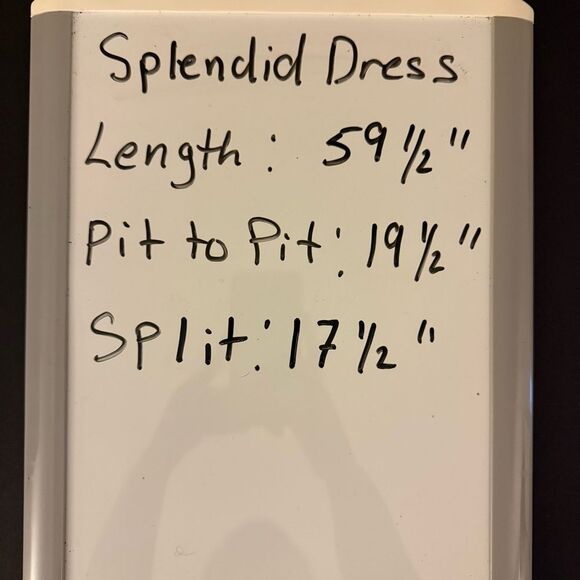 Splendid Dress
Length: 59 1/2"
Pit to Pit: 19 1/2"
Split: 17 1/2"